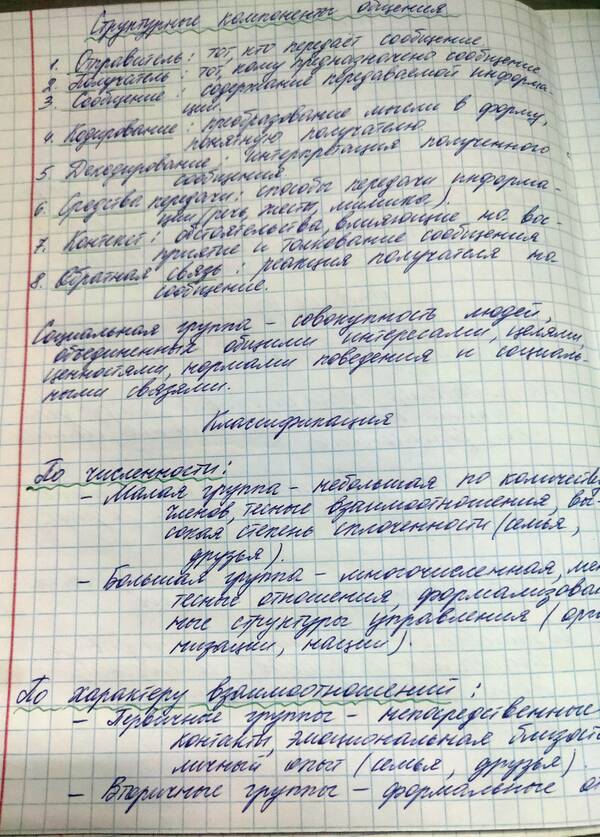 Структурные компоненты общения
1. Отправитель: тот, кто передаёт сообщение
2. Получатель: тот, кому предназначено сообщение
3. Сообщение: содержание передаваемой информа-
ции.
4. Кодирование: преобразование мысли в форму,
понятную получателю
5. Декодирование: интерпретация полученного
сообщения
6. Средства передачи: способы передачи информа-
ции (речь, жесты, мимика).
7. Контекст: обстоятельства, влияющие на вос-
приятие и толкование сообщения
8. Обратная связь: реакция получателя на
сообщение.
Социальная группа – совокупность людей,
объединенных общими интересами, целями,
ценностями, нормами поведения и социаль-
ными связями.
Классификация
По численности:
– Малая группа – небольшая по количеств
членов, тесные взаимоотношения, вы-
сокая степень сплоченности (семья,
друзья)
– Большая группа – многочисленная, мен
тесные отношения, формализован
ные структуры управления (орга
низации, нации).
По характеру взаимоотношений:
– Первичные группы – непосредственные
контакты, эмоциональная близост
личный опыт (семья, друзья).
– Вторичные группы – формальные от